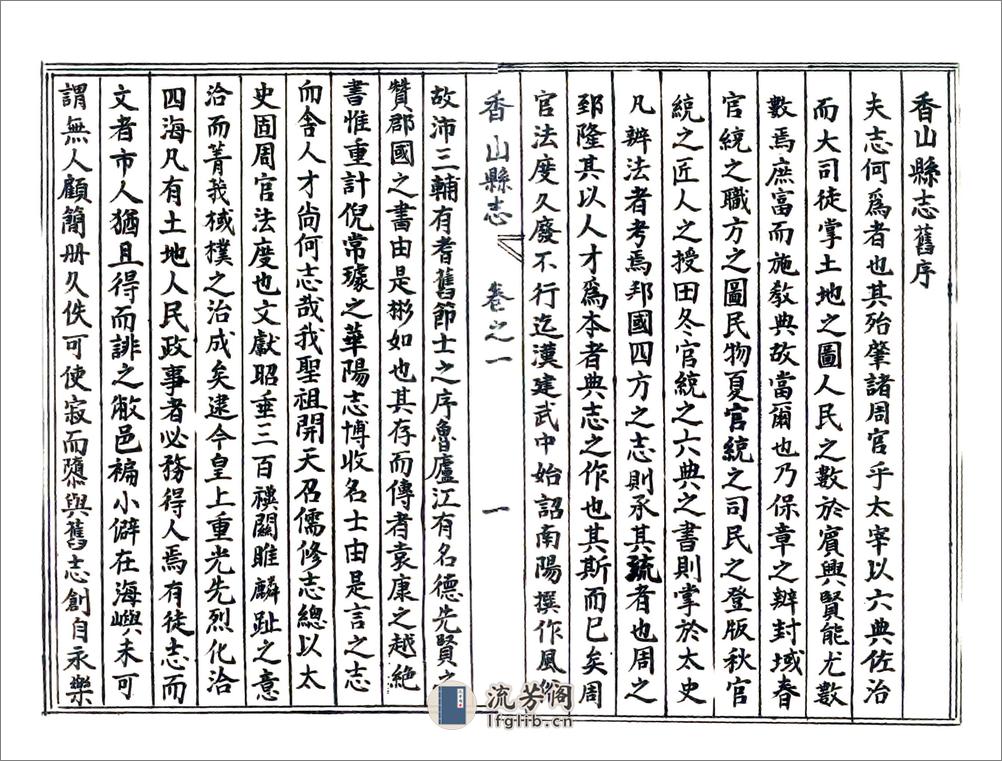 香山縣志舊序
夫志何爲者也其殆肇諸周官乎太宰以六典佐治
而大司徒掌土地之圖人民之數於賓興賢能尤數
數焉庶富而施敎典故當爾也乃保章之辨封域春
官統之職方之圖民物夏官統之司民之登版秋官
統之匠人之授田冬官統之六典之書則掌於太史
凡辨法者考焉邦國四方之志則承其疏者也周之
郅隆其以人才爲本者典志之作也其斯而已矣周
官法度久廢不行迄漢建武中始詔南陽撰作風俗
香山縣志 卷之一 一
故沛三輔有耆舊節士之序魯廬江有名德先賢之
贊郡國之書由是彬如也其存而傳者袁康之越絶
書惟重計倪常璩之華陽志博收名士由是言之志
而舍人才尚何志哉我聖祖開天召儒修志總以太
史固周官法度也文獻昭垂三百禩關雎麟趾之意
洽而菁莪棫樸之治成矣逮今皇上重光先烈化洽
四海凡有土地人民政事者必務得人焉有徒志而
文者市人猶且得而誹之敝邑褊小僻在海嶼未可
謂無人顧簡册久佚可使寂而隳與舊志創自永樂
流芳阁
lfglib.cn